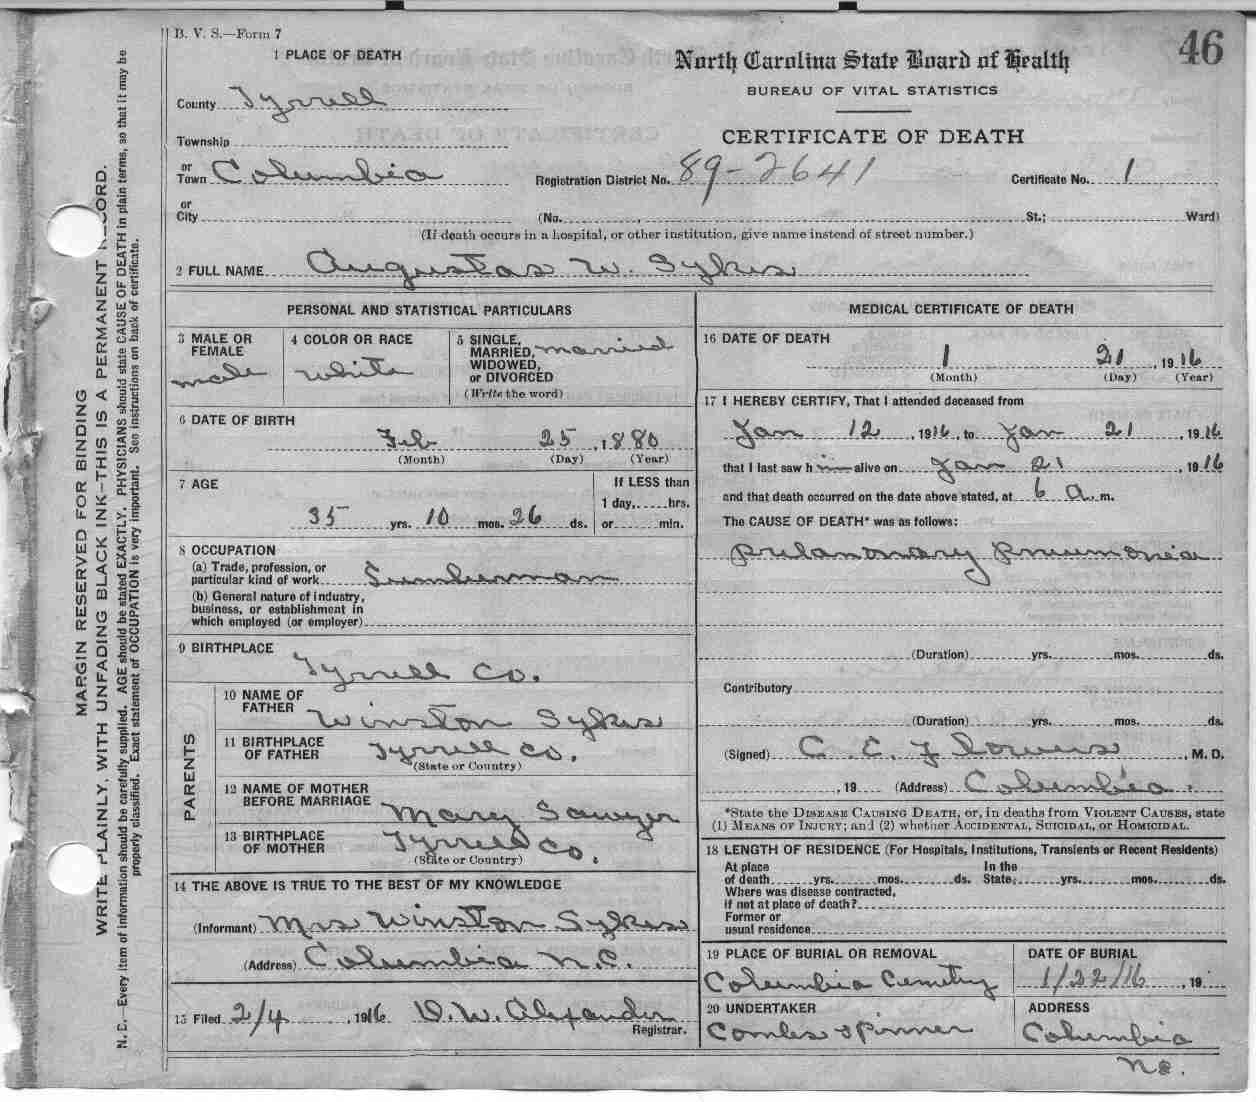 B. V. S.—Form 7
46
1 PLACE OF DEATH
North Carolina State Board of Health
BUREAU OF VITAL STATISTICS
County Tyrrell
CERTIFICATE OF DEATH
Township
or
Town Columbia
Registration District No. 89-2641 Certificate No. 1
or
City (No. , St.; Ward)
(If death occurs in a hospital, or other institution, give name instead of street number.)
2 FULL NAME Augustas W. Sykes
PERSONAL AND STATISTICAL PARTICULARS
3 MALE OR FEMALE
male
4 COLOR OR RACE
white
5 SINGLE, MARRIED, WIDOWED, or DIVORCED
(Write the word)
married
6 DATE OF BIRTH
Feb 25, 1880
(Month) (Day) (Year)
7 AGE
35 yrs. 10 mos. 26 ds.
If LESS than
1 day, hrs.
or min.
8 OCCUPATION
(a) Trade, profession, or
particular kind of work Lumberman
(b) General nature of industry,
business, or establishment in
which employed (or employer)
9 BIRTHPLACE
Tyrrell Co.
PARENTS
10 NAME OF
FATHER Winston Sykes
11 BIRTHPLACE
OF FATHER Tyrrell Co.
(State or Country)
12 NAME OF MOTHER
BEFORE MARRIAGE Mary Sawyer
13 BIRTHPLACE
OF MOTHER Tyrrell Co.
(State or Country)
14 THE ABOVE IS TRUE TO THE BEST OF MY KNOWLEDGE
(Informant) Mrs Winston Sykes
(Address) Columbia N.C.
15 Filed 2/4, 1916 D. W. Alexander
Registrar.
MEDICAL CERTIFICATE OF DEATH
16 DATE OF DEATH
1 21, 1916
(Month) (Day) (Year)
17 I HEREBY CERTIFY, That I attended deceased from
Jan 12, 1916, to Jan 21, 1916
that I last saw him alive on Jan 21, 1916
and that death occurred on the date above stated, at 6 a. m.
The CAUSE OF DEATH* was as follows:
Pulanonary Pneumonia
(Duration) yrs. mos. ds.
Contributory
(Duration) yrs. mos. ds.
(Signed) C. E. Flowers, M. D.
, 19 (Address) Columbia.
*State the DISEASE CAUSING DEATH, or, in deaths from VIOLENT CAUSES, state
(1) MEANS OF INJURY; and (2) whether ACCIDENTAL, SUICIDAL, or HOMICIDAL.
18 LENGTH OF RESIDENCE (For Hospitals, Institutions, Transients or Recent Residents)
At place In the
of death yrs. mos. ds. State, yrs. mos. ds.
Where was disease contracted,
if not at place of death?
Former or
usual residence
19 PLACE OF BURIAL OR REMOVAL
Columbia Cemetry
DATE OF BURIAL
1/22/16, 19
20 UNDERTAKER
Combs & Pinner
ADDRESS
Columbia
N.C.
MARGIN RESERVED FOR BINDING
WRITE PLAINLY, WITH UNFADING BLACK INK—THIS IS A PERMANENT RECORD.
N. B.—Every item of information should be carefully supplied. AGE should be stated EXACTLY. PHYSICIANS should state CAUSE OF DEATH in plain terms, so that it may be
properly classified. Exact statement of OCCUPATION is very important. See instructions on back of certificate.